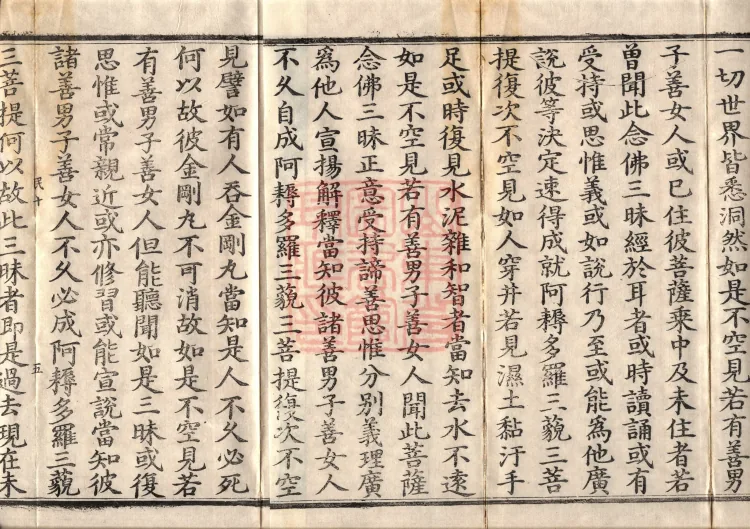 一切世界皆悉洞然如是不空見若有善男
子善女人或已住彼菩薩乘中及未住者若
曾聞此念佛三昧經於耳者或時讀誦或有
受持或思惟義或如說行乃至或能為他廣
說彼等決定速得成就阿耨多羅三藐三菩
提復次不空見如人穿井若見濕土黏汙手
足或時復見水泥雜和智者當知去水不遠
如是不空見若有善男子善女人聞此菩薩
念佛三昧正意受持諦善思惟分別義理廣
為他人宣揚解釋當知彼諸善男子善女人
不久自成阿耨多羅三藐三菩提復次不空
見譬如有人吞金剛丸當知是人不久必死
何以故彼金剛丸不可消故如是不空見若
有善男子善女人但能聽聞如是三昧或復
思惟或常親近或亦修習或能宣說當知彼
諸善男子善女人不久必成阿耨多羅三藐
五
三菩提何以故此三昧者即是過去現在未